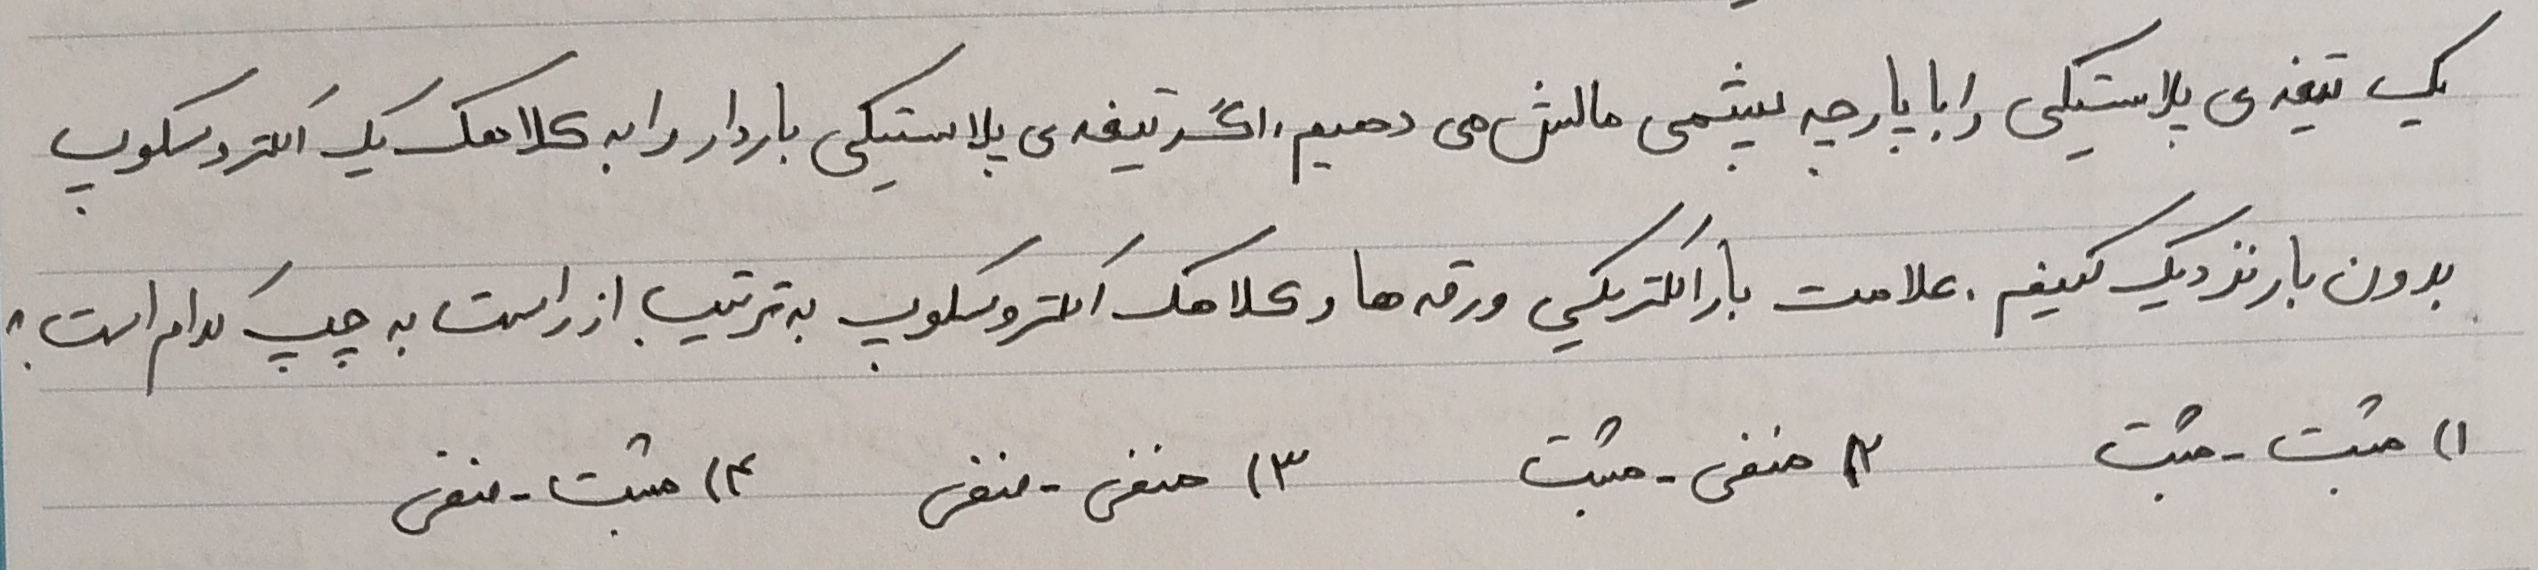 یک تیغه ی پلاستیکی را با پارچه پشمی مالش می دهیم، اگر تیغه ی پلاستیکی باردار را به کلاهک یک الکتروسکوپ
بدون بار نزدیک کنیم. علامت بار الکتریکی ورقه ها و کلاهک الکتروسکوپ به ترتیب از راست به چپ کدام است؟
۱) مثبت - مثبت ۲) منفی - مثبت ۳) منفی - منفی ۴) مثبت - منفی